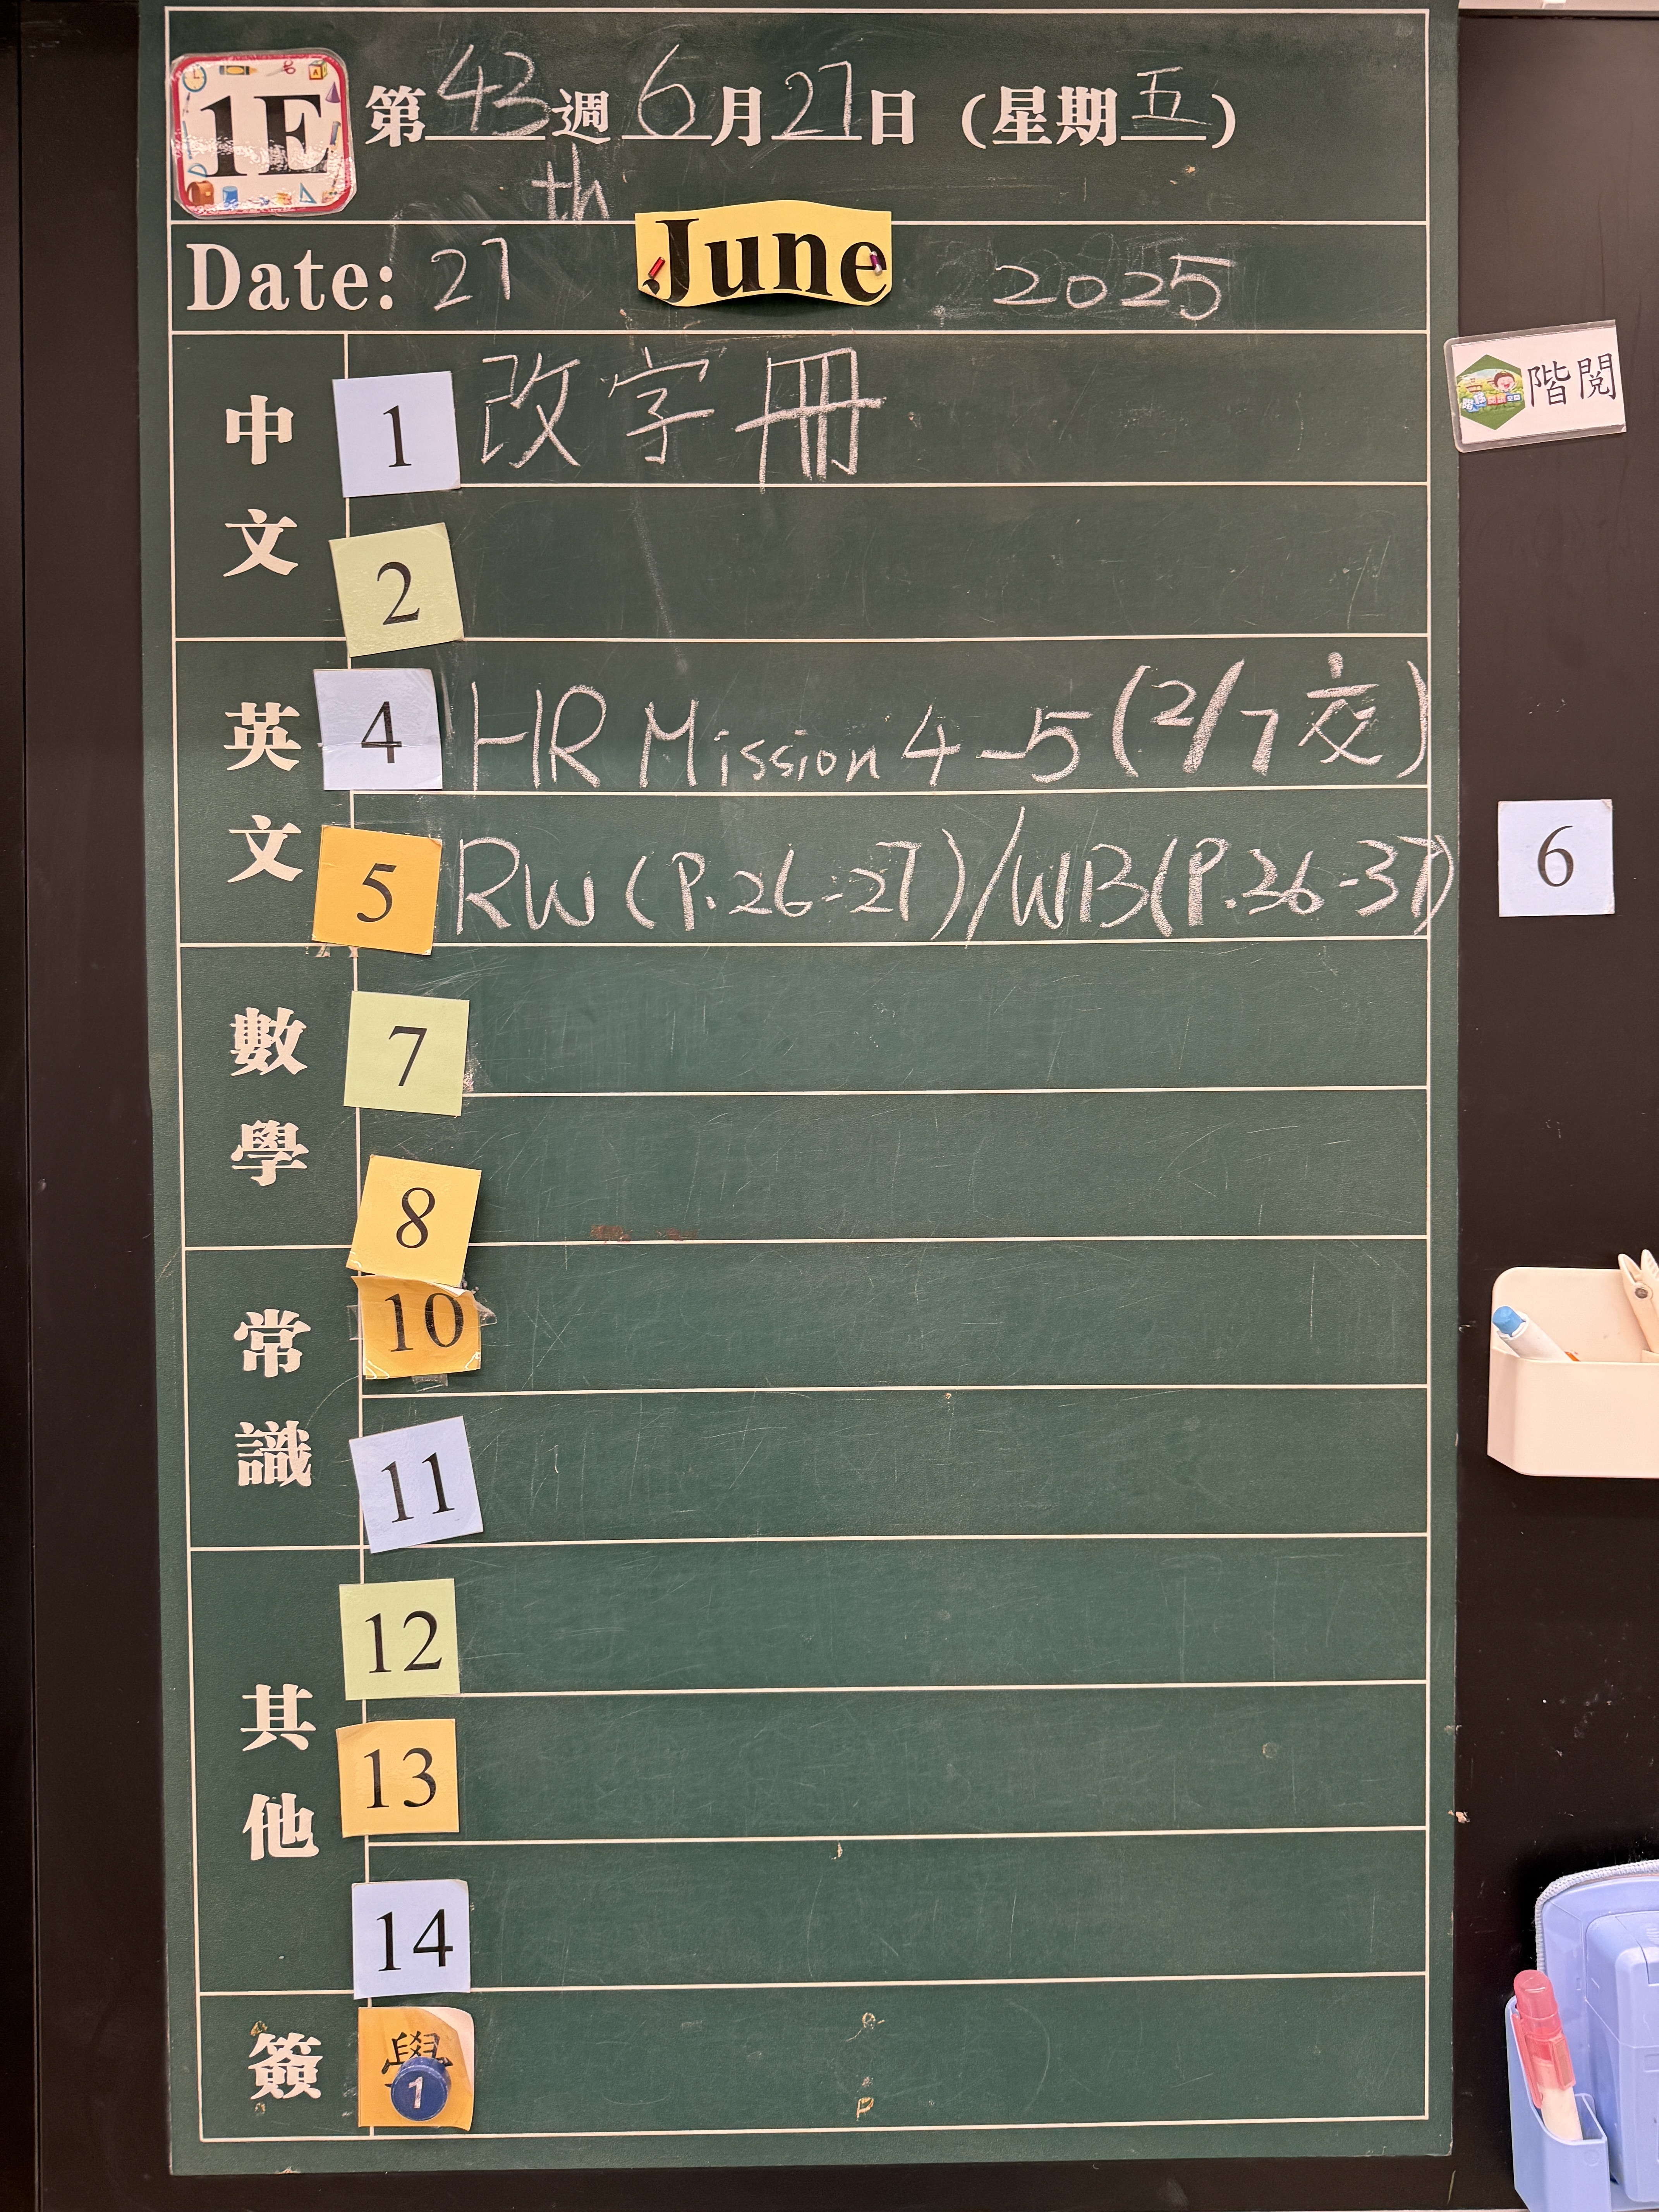 1E 第43週 6月27日 (星期五)
th
Date: 27 June 2025
階閱
中文
1 改字冊
2
英文
4 HR Mission 4-5 (2/7 交)
5 RW (P.26-27) / WB (P.26-37)
6
數學
7
8
常識
10
11
其他
12
13
14
簽
學
1